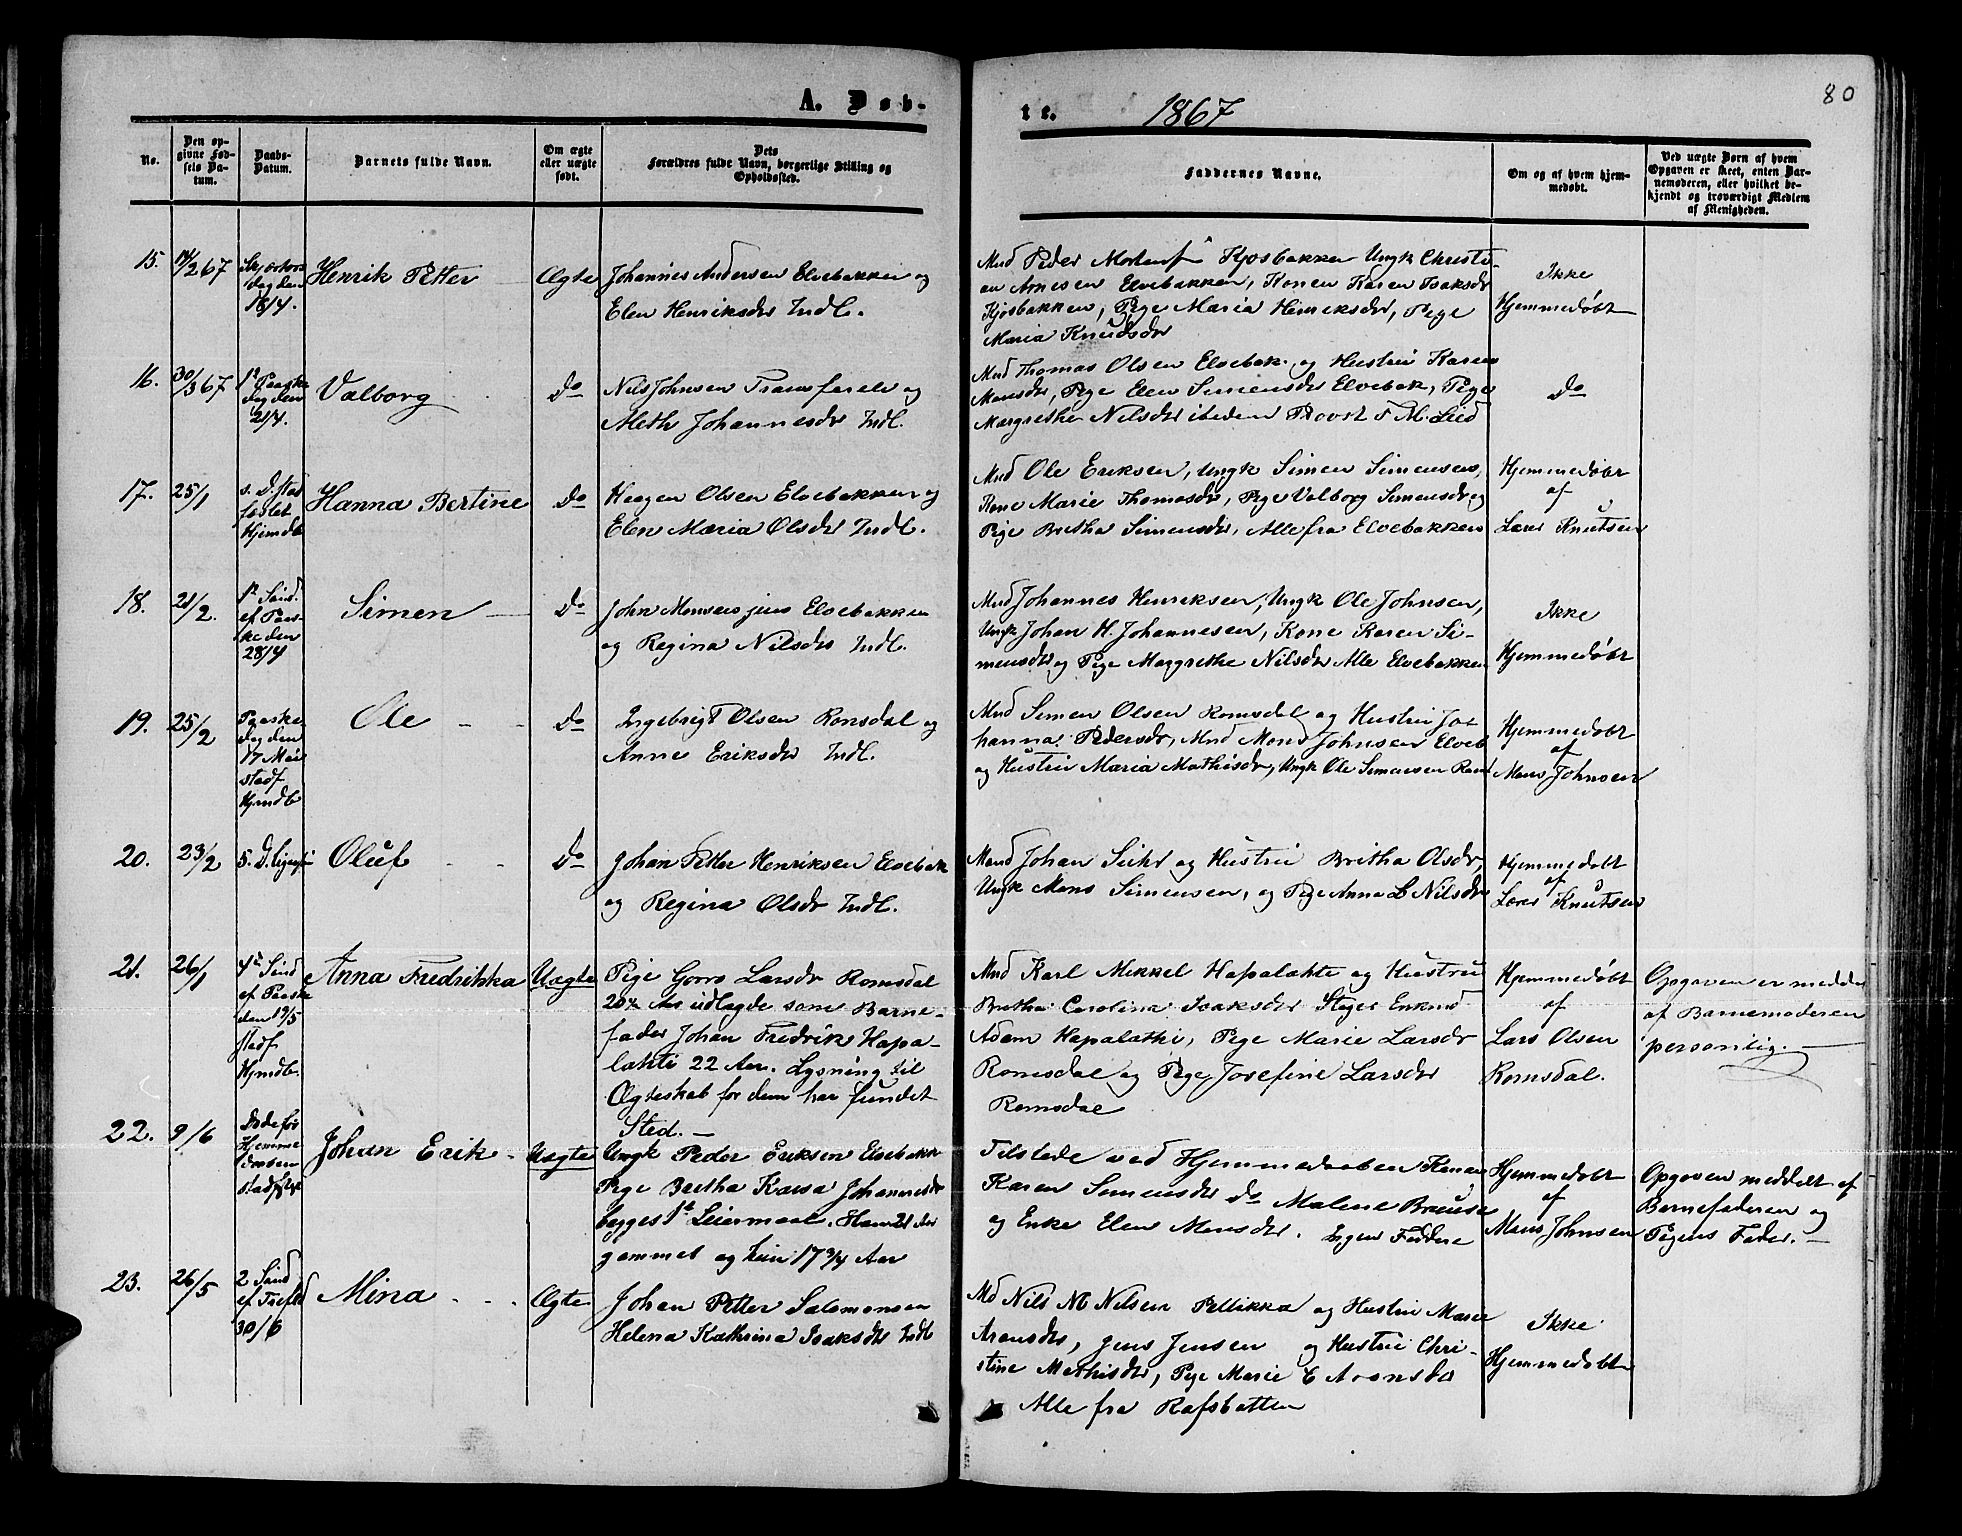 A. Døb-
te. 1867
80
No.
Den op-
givne Fød-
sels Da-
tum.
Daabs-
Datum.
Barnets fulde Navn.
Om ægte
eller uægte
født.
Dets
Forældres fulde Navn, borgerlige Stilling og
Opholdssted.
Faddernes Navne.
Om og af hvem hjem-
medøbt.
Ved uægte Børn af hvem
Opgaven er skeet, enten Bar-
nemoderen, eller hvilket be-
kjendt og troværdigt Medlem
af Menigheden.
15.
14/2 67
Skjærtors
dag den
18/4.
Henrik Petter
Ægte
Johannes Andersen Elvebakken og
Elen Henriksdr Indl.
Mnd Peder Mortensen Kjosbakken Ungk Christi-
an Arnesen Elvebakken, Konen Karen Isaksdr
Kjosbakken, Pige Maria Henriksdr, Pige
Maria Knudsdr
Ikke
Hjemmedøbt
16.
30/3 67
1ste Paaske
dag den
21/4.
Valborg
Do
Nils Johnsen Tranfarelv og
Meth Johannesdr Indl.
Mnd Thomas Olsen Elvebak. og Hustru Karen
Monsdr, Pige Elen Simensdr Elvebak, Pige
Margrethe Nilsdr ibidem Provst F M. Lied
Do
17.
25/1
s. D. stad
fæstet
Hjemdb
Hanna Bertine
Do
Haagen Olsen Elvebakken og
Elen Maria Olsdr Indl.
Mnd Ole Eriksen, Ungk Simen Simensen,
Kone Marie Thomasdr, Pige Valborg Simensdr og
Pige Britha Simensdr, Alle fra Elvebakken
Hjemmedøbt
af
Lærer Knutsen
18.
21/2.
1ste Sønd.
ef Paas-
ke den
28/4
Simen
Do
John Monsen jun Elvebakken
og Regina Nilsdr Indl.
Mnd Johannes Henriksen, Ungk Ole Johnsen,
Ungk Johan H. Johannesen, Kone Karen Si-
mensdr og Pige Maggrethe Nilsdr Alle Elvebakken
Ikke
Hjemmedøbt
19.
25/2
dag den
17 Mai
stadf
Hjmdb
Ole
Do
Ingebrigt Olsen Romsdal og
Anne Eriksdr Indl.
Mnd Simen Olsen Romsdal og Hustru Jo-
hanna Pedersdr, Mnd Mons Johnsen Elveb
og Hustru Maria Mathisdr, Ungk Ole Simensen Roms
Hjemmedøbt
af
Mons Johnsen
20.
23/2
s. D.
Oluf
Do
Johan Petter Henriksen Elvebak
og Regina Olsdr Indl.
Mand Johan Suhr og Hustru Britha Olsdr,
Ungk Mons Simensen, og Pige Anna L Nilsdr
Hjemmedøbt
af
Lærer Knutsen
21.
26/1
4de Sønd
ef Paaske
den 19/5
stadf
Hjmdb.
Anna Fredrikka
Uægte
Pige Gorro Larsdr Romsdal
20 3/4 Aar udlagde som Barne-
fader Johan Fredrik Hapa-
lahti 22 Aar. Lysning til
Ægteskab for dem har fundet
Sted.
Mnd Karl Mikkel Hapalahte og Hustru
Britha Carolina Isaksdr Stager Enkmd
Adam Hapalathi, Pige Marie Larsdr
Romsdal og Pige, Josefine Larsdr
Romsdal
Hjemmedøbt
af
Lars Olsen
Romsdal.
Opgaven er meddelt
af Barnemoderen
personlig.
22.
9/6
Døde før
Hjemme
daaben
stadfstes
Johan Erik
Uægte
Ungk Peder Eriksen Elvebakk
Pige Britha Kaisa Johannesdr
begges 1ste Leiermaal. Han 21 Aar
gammel og hun 17 3/4 Aar
Tilstede ved Hjemmedaaben Konen
Karen Simensdr Do Malene Bruuse
og Enke Elen Monsdr. Ingen Faddere
Hjemmedøbt
af
Mons Johnsen
Opgaven meddelt af
Barnefaderen og
Pigens Fader.
23.
26/5
2 Sønd
ef Trefld
30/6
Mina
Ægte
Johan Petter Salomonsen
Helena Kathrina Isaksdr Indl
Md Nils M Nilsen Pellikka og Hustru Marie
Aronsdr, Jens Jensen og Hustru Chri-
stine Mathisdr, Pige Marie E Aronsdr
Alle fra Rafsbotten
Ikke
Hjemmedøbt